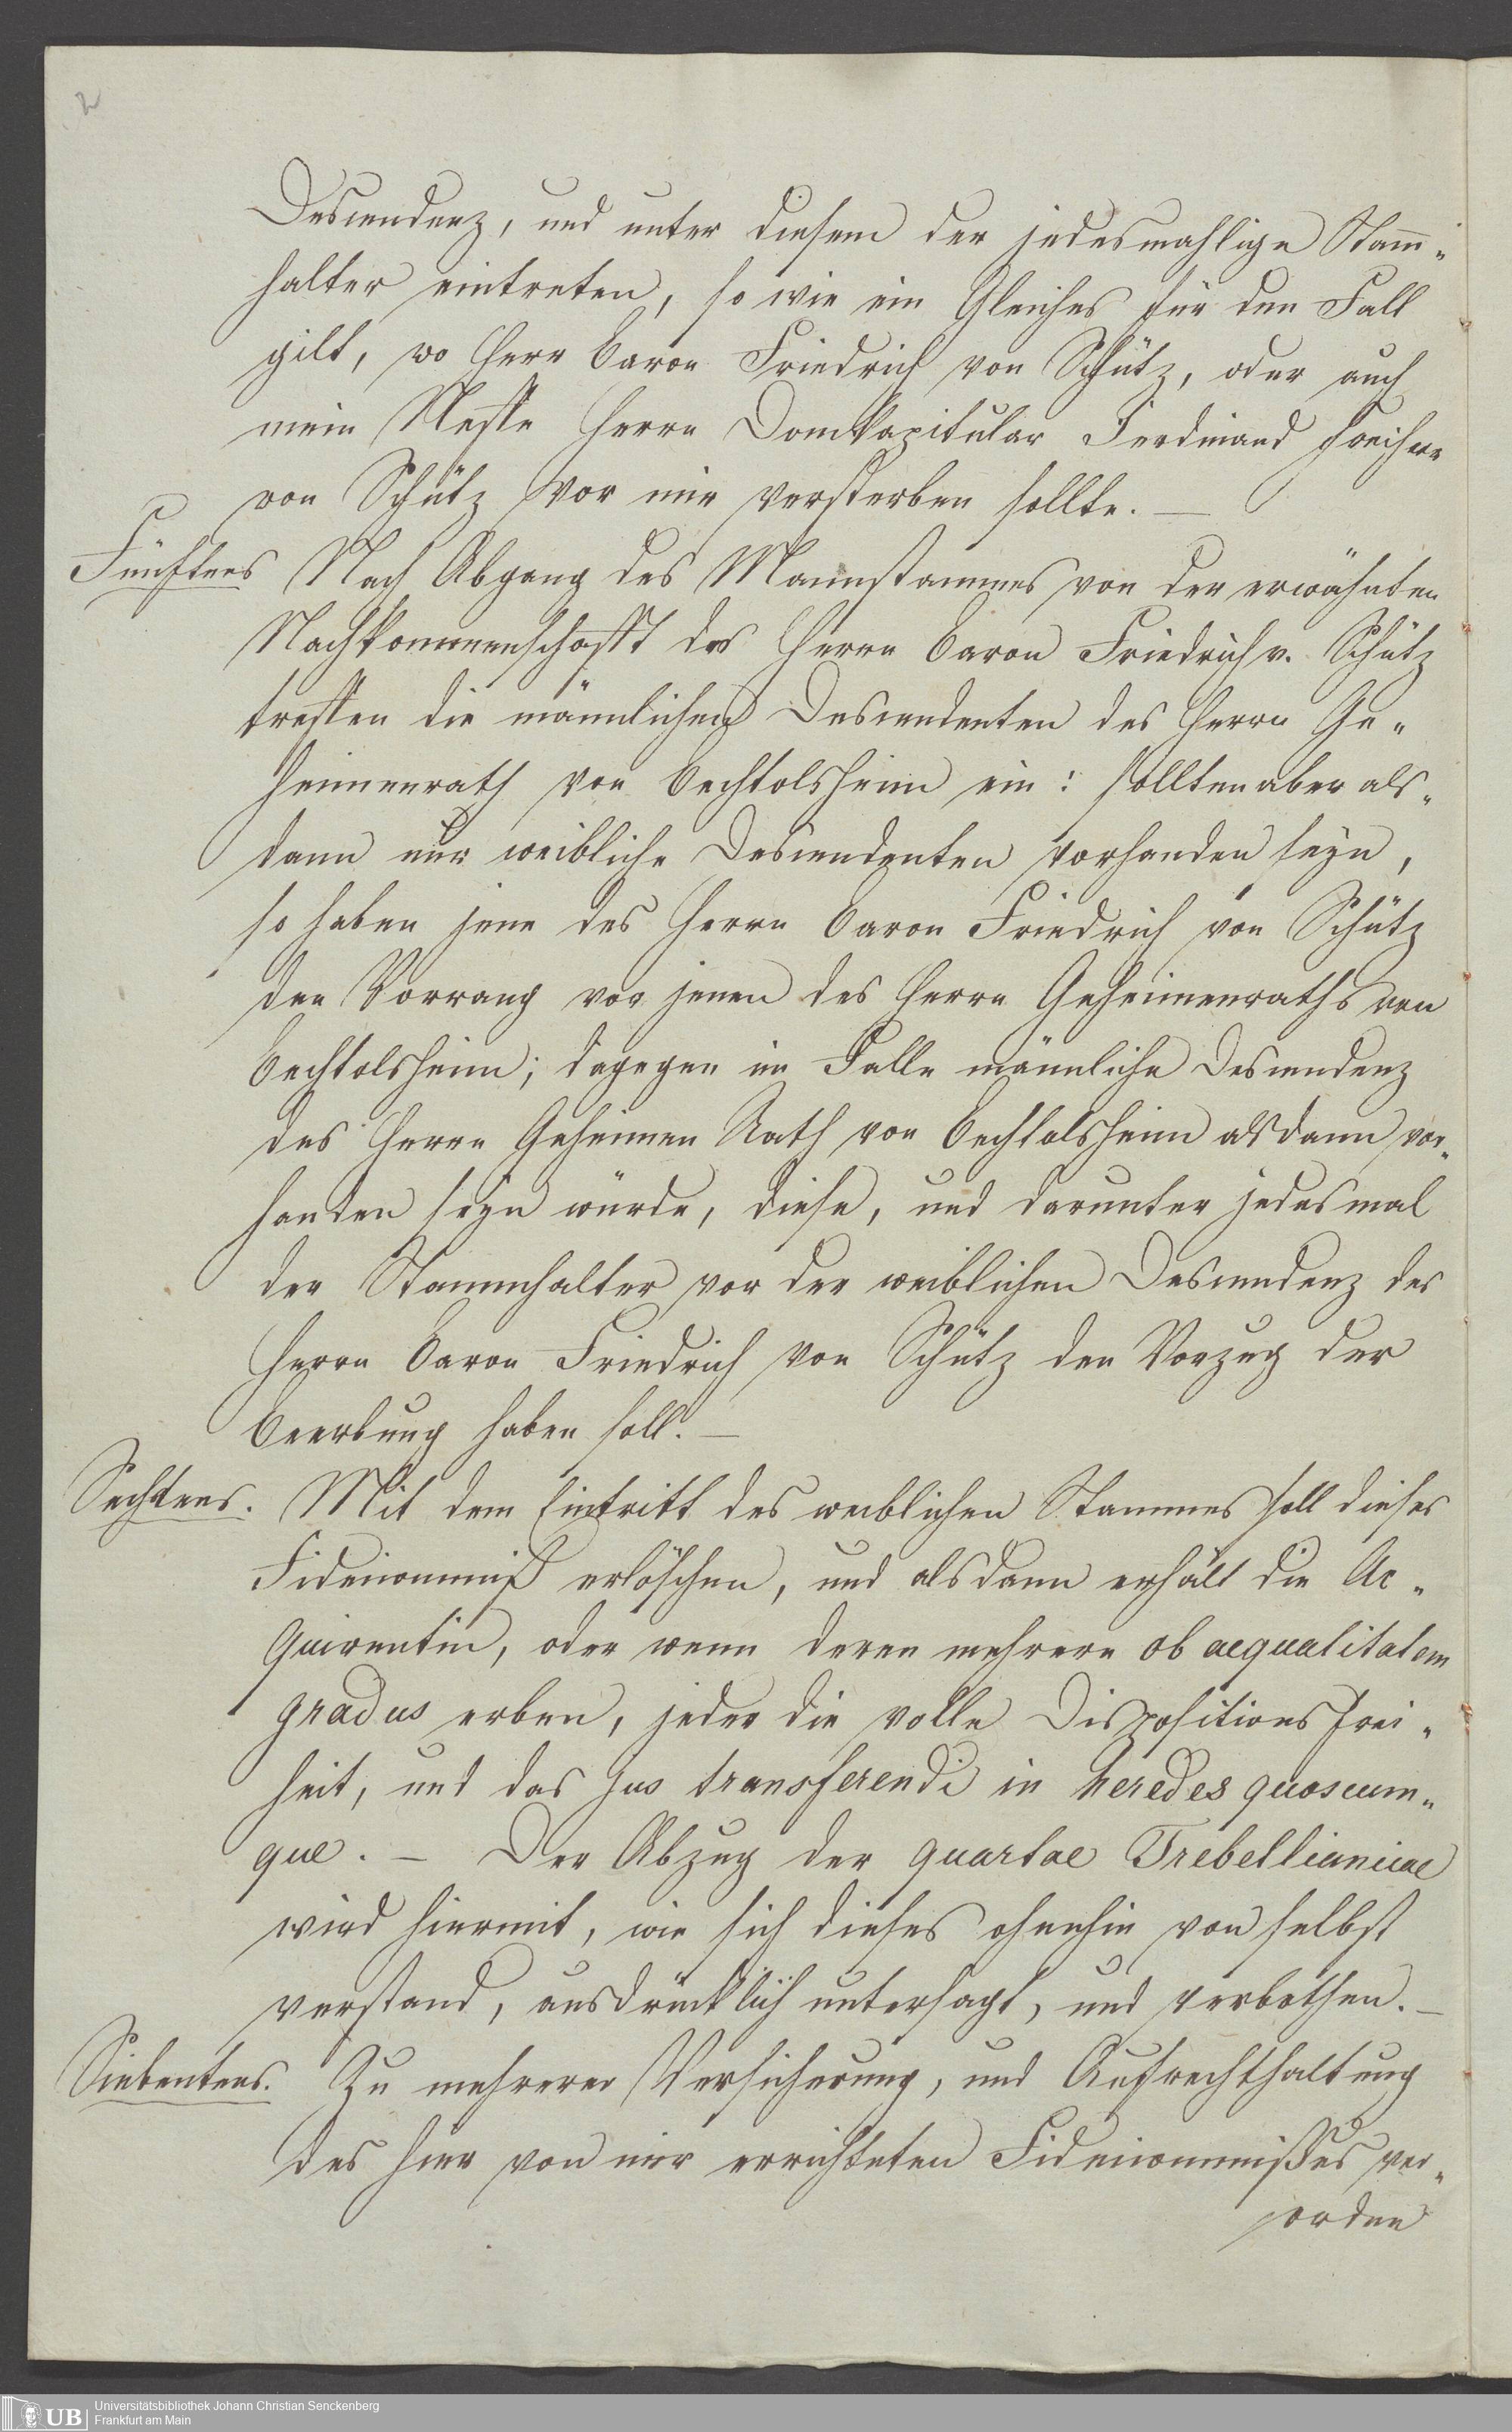 2
Descendenz, und unter diesem der jedesmahlige Stam̄-
halter eintreten, so wie ein Gleiches für den Fall
gilt, wo Herr Baron Friedrich von Schütz, oder auch
mein Neffe Herrn Domkapitular Ferdinand Freiherr
von Schütz vor mir versterben sollte. —
Fünftens Nach Abgang des Mannstammes von der erwähnten
Nachkommenschafft des Herrn Baron Friedrich v. Schütz
treffen die männlichen Descendenten des Herrn Ge-
heimenrath von Bechtolsheim ein: sollten aber als-
dann nur weibliche Descendenten vorhanden seyn,
so haben jene des Herrn Baron Friedrich von Schütz
den Vorrang vor jenen des Herrn Geheimenraths von
Bechtolsheim; dagegen im Falle männliche Descendenz
des Herrn Geheimen Rath von Bechtolsheim alsdann vor-
handen seyn würde, diese, und darunter jedesmal
der Stammhalter vor der weiblichen Descendenz des
Herrn Baron Friedrich von Schütz den Vorzug der
Beerbung haben soll. —
Sechstens. Mit dem Eintritt des weiblichen Stammes soll dieses
Fideicommiß erlöschen, und alsdann erhält die Ac-
quirentin, oder wenn deren mehrere ob aequalitatem
gradus erben, jeder die volle Dispositions frei-
heit, und das Jus transferendi in heredes quoscum-
que. — Der Abzug der quartae Trebellianicae
wird hiermit, wie sich dieses ohnehin von selbst
verstand, ausdrücklich untersagt, und verbothen. —
Siebentens. Zu mehrerer Versicherung, und Aufrechthaltung
des hier von mir errichteten Fideicommißes ver-
orden
UB Universitätsbibliothek Johann Christian Senckenberg
Frankfurt am Main